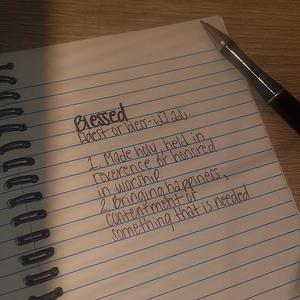 Blessed
[blest or bless-id] adj.
1. Made holy, held in
reverence or honored
in worship.
2. Bringing happiness,
contentment or
something that is needed